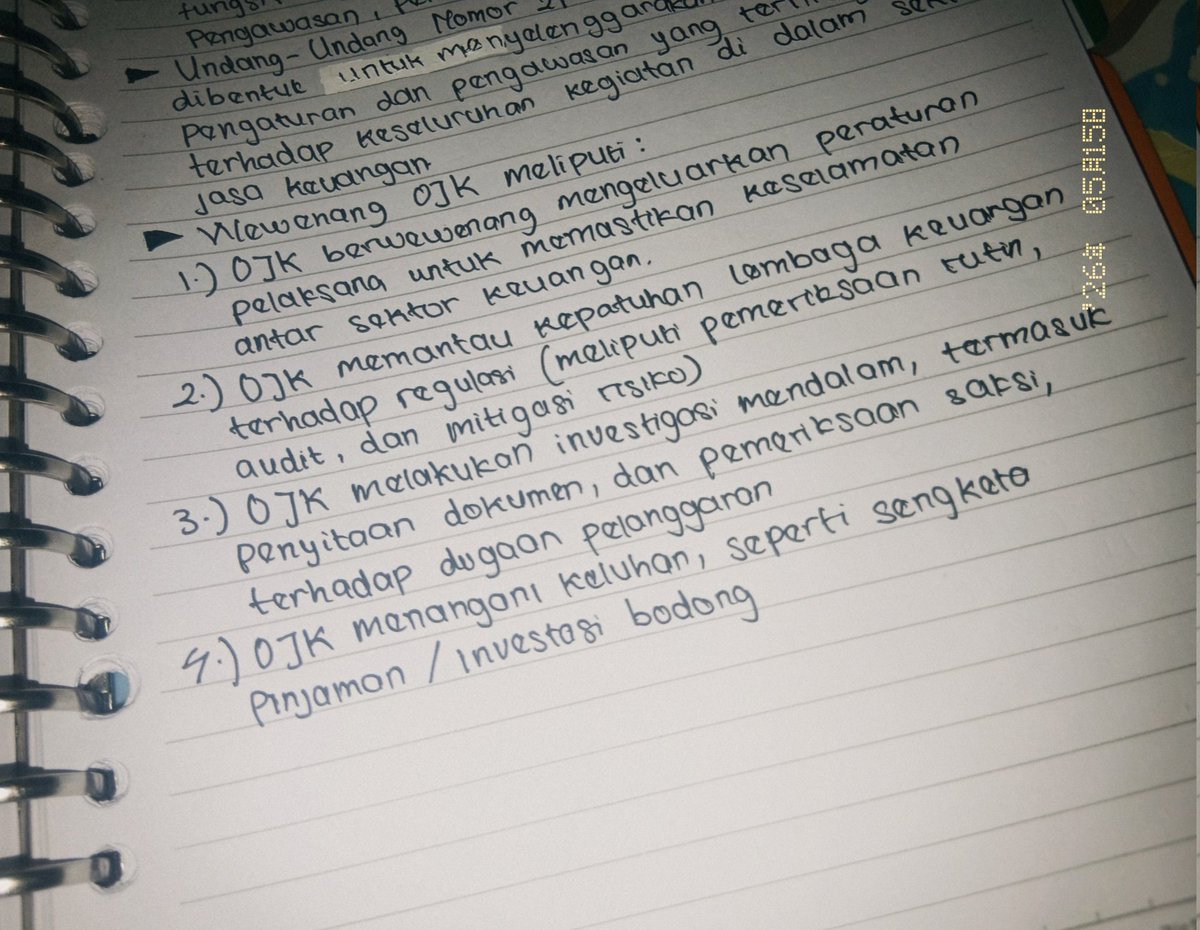 Pengawasan,
► Undang-Undang Nomor 21
dibentuk untuk menyelenggarakan
pengaturan dan pengawasan yang
terhadap keseluruhan kegiatan di dalam
jasa keuangan
► Wewenang OJK meliputi:
1.) OJK berwewenang mengeluarkan peraturan
pelaksana untuk memastikan keselamatan
antar sektor keuangan.
2.) OJK memantau kepatuhan lembaga keuangan
terhadap regulasi (meliputi pemeriksaan rutin,
audit, dan mitigasi risiko)
3.) OJK melakukan investigasi mendalam, termasuk
penyitaan dokumen, dan pemeriksaan saksi,
terhadap dugaan pelanggaran
4.) OJK menangani keluhan, seperti sengketa
pinjaman / investasi bodong